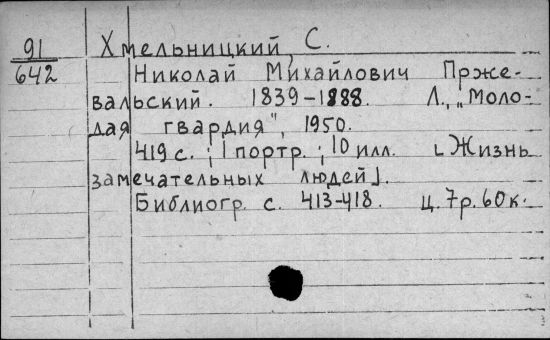 91 Хмельницкий, С.
642 Николай Михайлович Прже-
вальский. 1839-1888. Л., „Моло-
дая гвардия", 1950.
419 с.; 1 портр.; 10 илл. [Жизнь
замечательных людей].
Библиогр. с. 413-418. Ц. 7р. 60к.